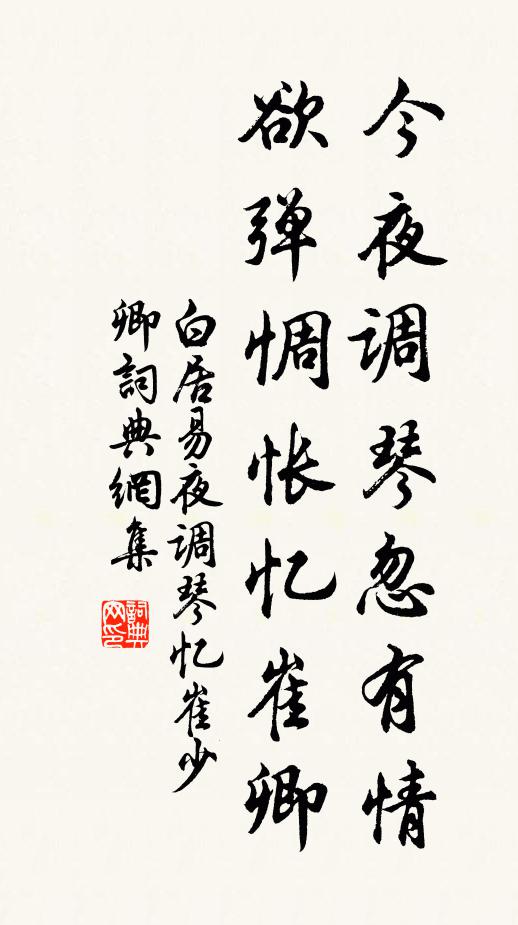 今夜调琴忽有情
欲弹惆怅忆崔卿
白居易夜调琴忆崔少
卿詞典網集
詞典
网印